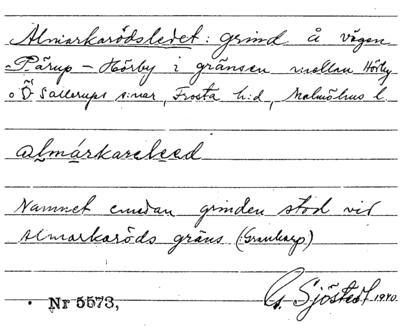 Almarkarödsledet: grind å vägen
Pärup – Hörby i gränsen mellan Hörby
o Ö Sallerups s:nar, Frosta h:d, Malmöhus l.
almárkareleed
Namnet emedan grinden stod vid
Almarkaröds gräns (:Granharp)
G. Sjöstedt 1940.
Nr 5573,